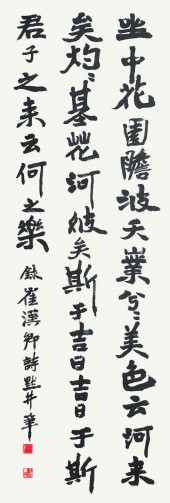 坐中花園瞻彼夭葉兮兮美色云何来
矣灼灼其花何彼矣斯于吉日吉日于斯
君子之来云何之樂 錄崔漢卿詩 井華